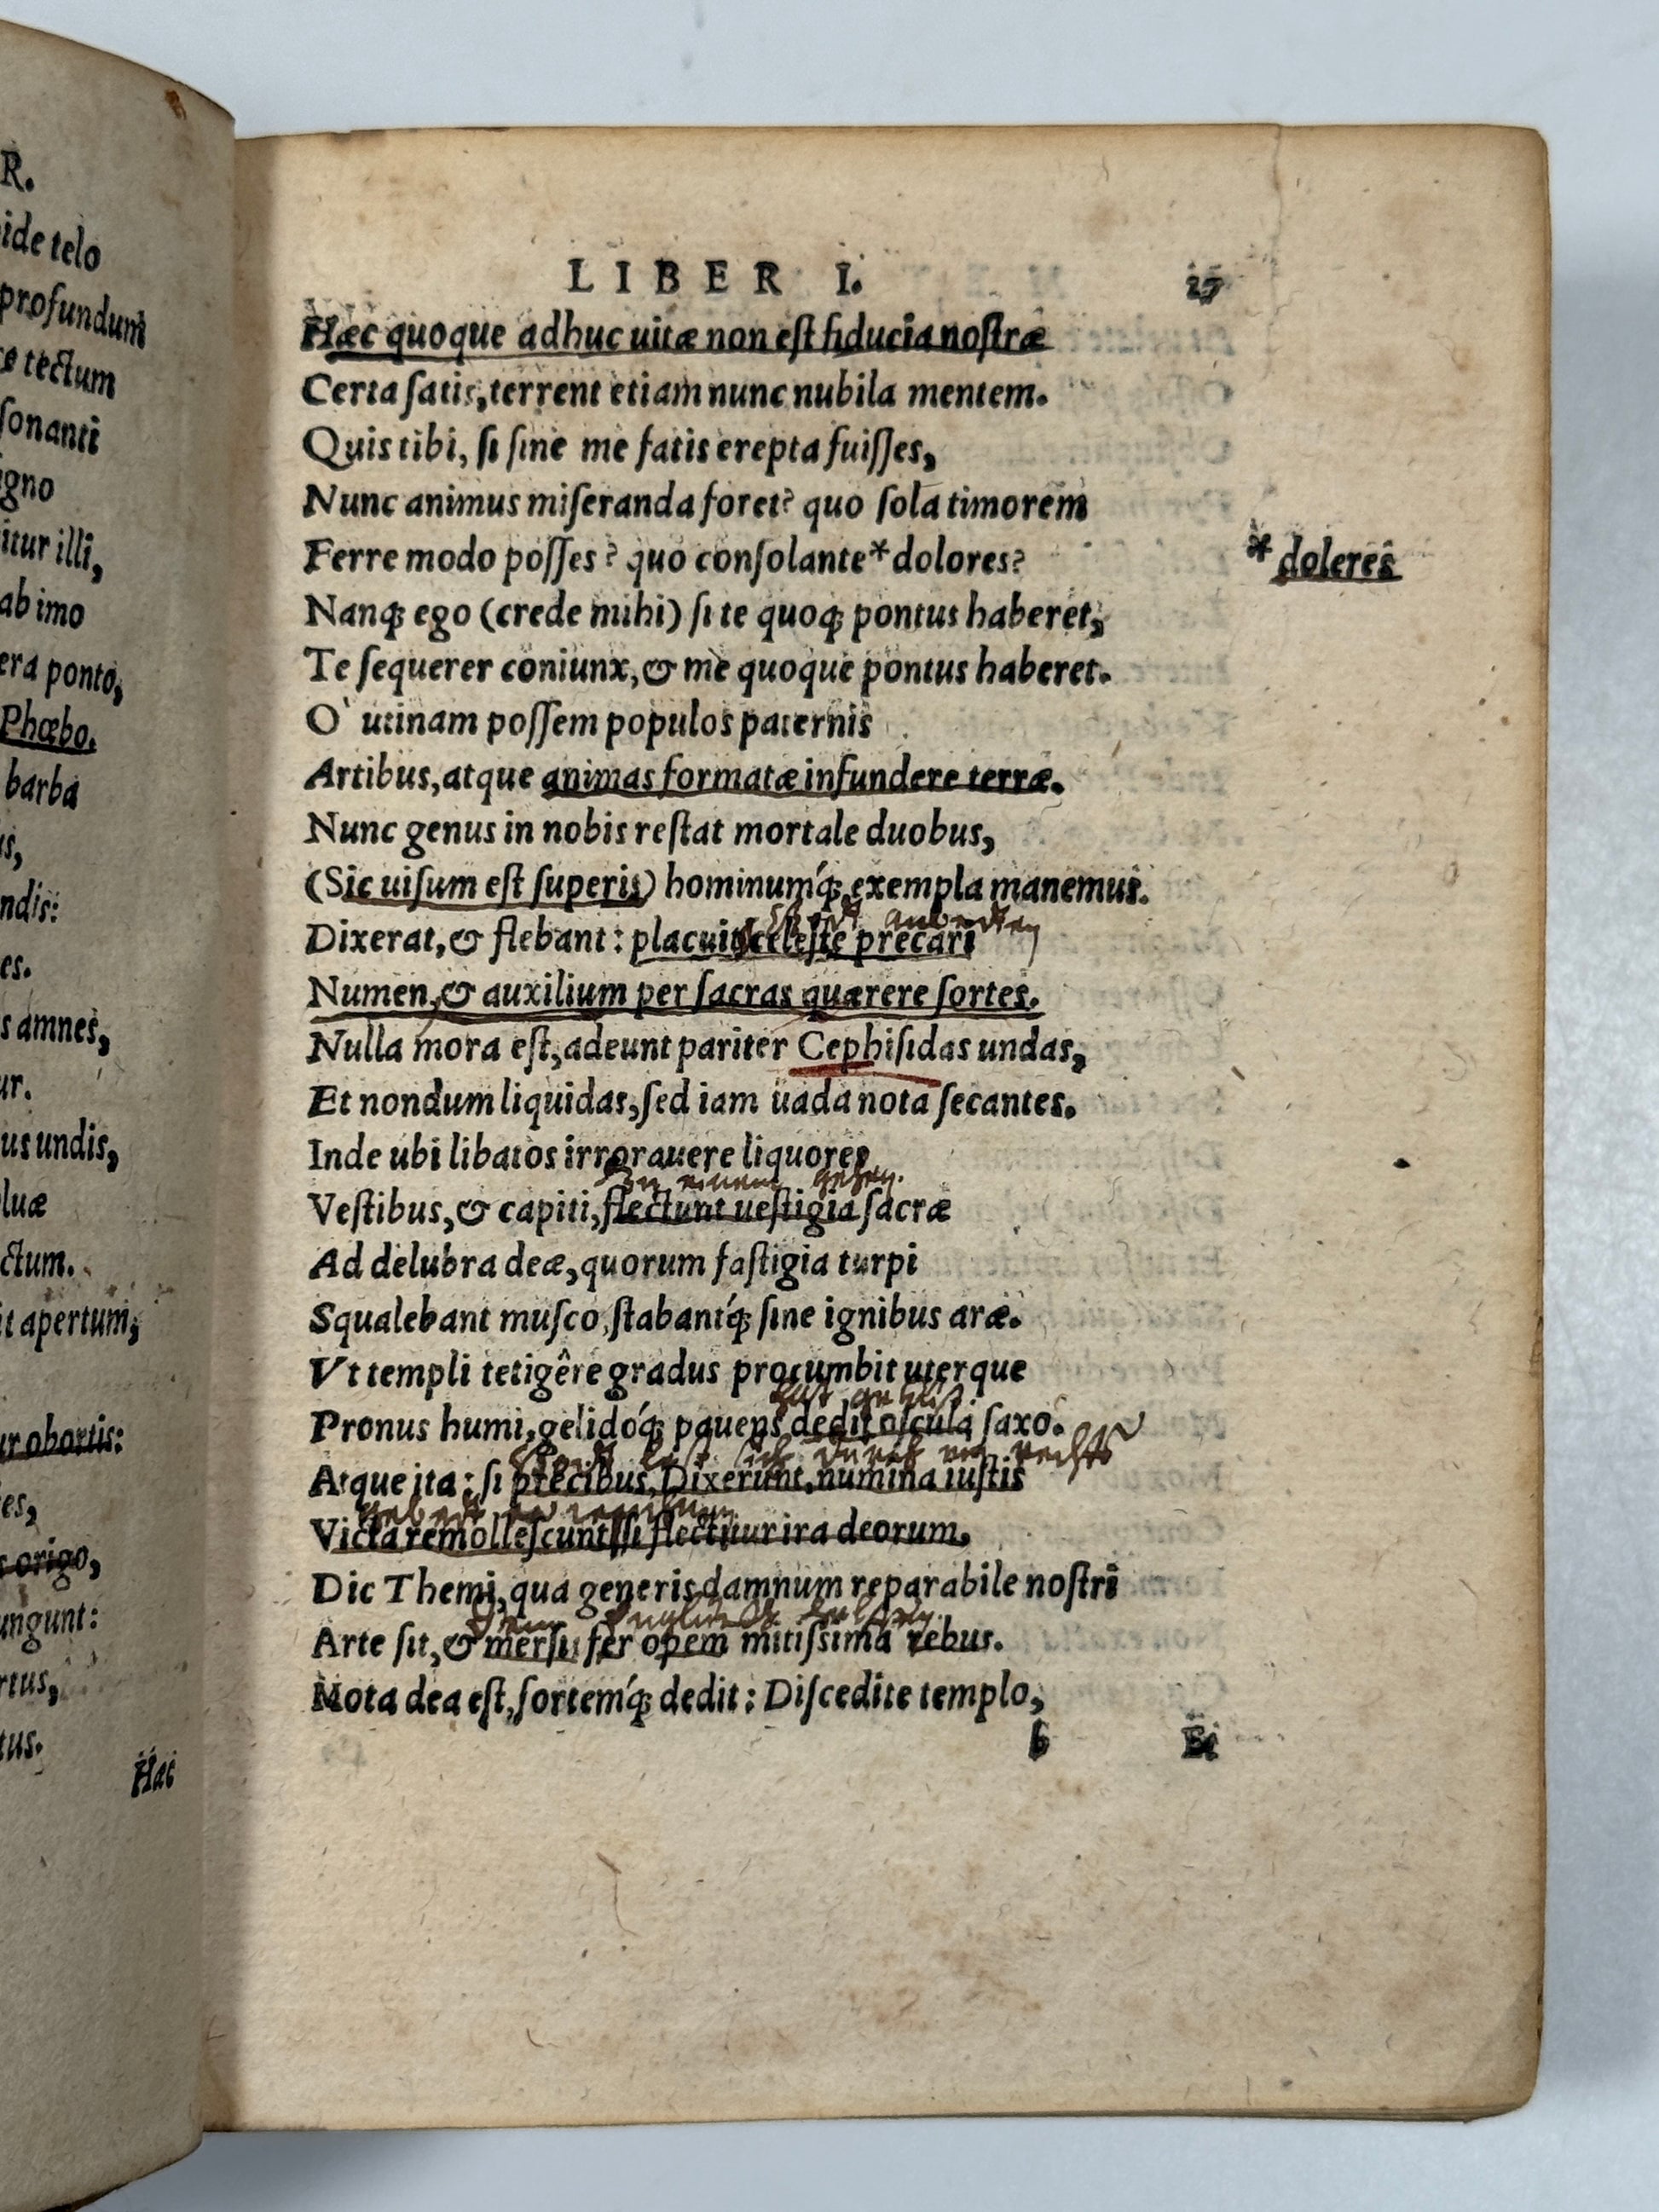 R.
ide telo
profundum
tectum
sonanti
igno
itur illi,
ab imo
era ponto,
Phœbo.
barba
us,
ndis:
es.
s amnes,
ur.
us undis,
luæ
ctum.
it apertum,
ur obortis:
es,
origo,
ungunt:
rtus,
tus.
Hæc
LIBER I. 25
Hæc quoque adhuc uitæ non eſt fiducia noſtræ
Certa ſatis, terrent etiam nunc nubila mentem.
Quis tibi, ſi ſine me fatis erepta fuiſſes,
Nunc animus miſeranda foret? quo ſola timorem
Ferre modo poſſes? quo conſolante*dolores?
* doleres
Nanq; ego (crede mihi) ſi te quoq; pontus haberet,
Te ſequerer coniunx, & me quoque pontus haberet.
O' utinam poſſem populos paternis
Artibus, atque animas formatæ infundere terræ.
Nunc genus in nobis reſtat mortale duobus,
(Sic uiſum eſt ſuperis) hominumq́; exempla manemus.
Gott anbetten
Dixerat, & flebant: placuit cœleſte precari
Numen, & auxilium per ſacras quærere ſortes.
Nulla mora eſt, adeunt pariter Cephiſidas undas,
Et nondum liquidas, ſed iam uada nota ſecantes.
Inde ubi libatos irrorauere liquores
einem gehen.
Veſtibus, & capiti, flectunt ueſtigia ſacræ
Ad delubra deæ, quorum faſtigia turpi
Squalebant muſco, ſtabantq́; ſine ignibus aræ.
Vt templi tetigêre gradus procumbit uterque
hat geküst.
Pronus humi, gelidoq́; pauens dedit oſcula ſaxo.
Gott lest sich durch ein rechts
Atque ita: ſi precibus, Dixerunt, numina iuſtis
gebett
Victa remolleſcunt, ſi flectitur ira deorum,
Dic Themi, qua generis damnum reparabile noſtri
Arte ſit, & merſis fer opem mitiſsima rebus.
Mota dea eſt, ſortemq́; dedit: Diſcedite templo,
b Et